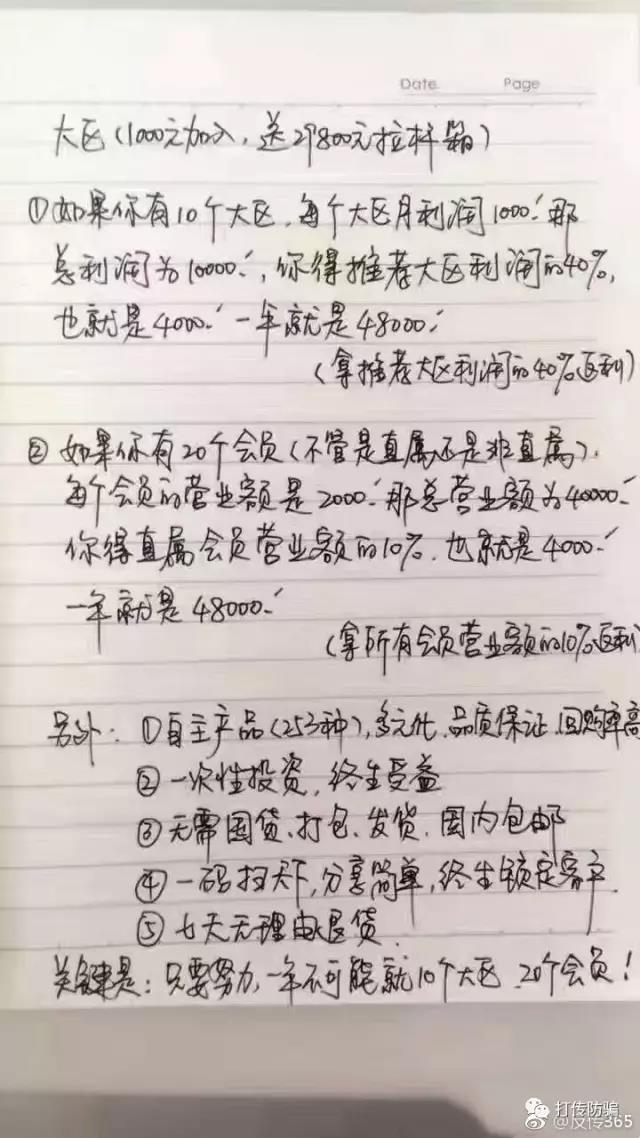 Date    Page
大区(1000元加入,送29800元拉杆箱)
①如果你有10个大区,每个大区月利润1000.那
总利润为10000.,你得推荐大区利润的40%,
也就是4000. 一年就是48000.
(拿推荐大区利润的40%返利)
②如果你有20个会员(不管是直属还是非直属),
每个会员的营业额是2000.那总营业额为40000.
你得直属会员营业额的10%.也就是4000.
一年就是48000.
(拿所有会员营业额的10%返利
另外:①自主产品(253种),多元化.品质保证.回购率高
②一次性投资,终生受益
③无需囤货、打包、发货.国内包邮
④一码扫天下,分享简单,终生锁定客户.
⑤七天无理由退货.
关键是:只要努力,一年不可能就10个大区、20个会员!
打传防骗
@反传365